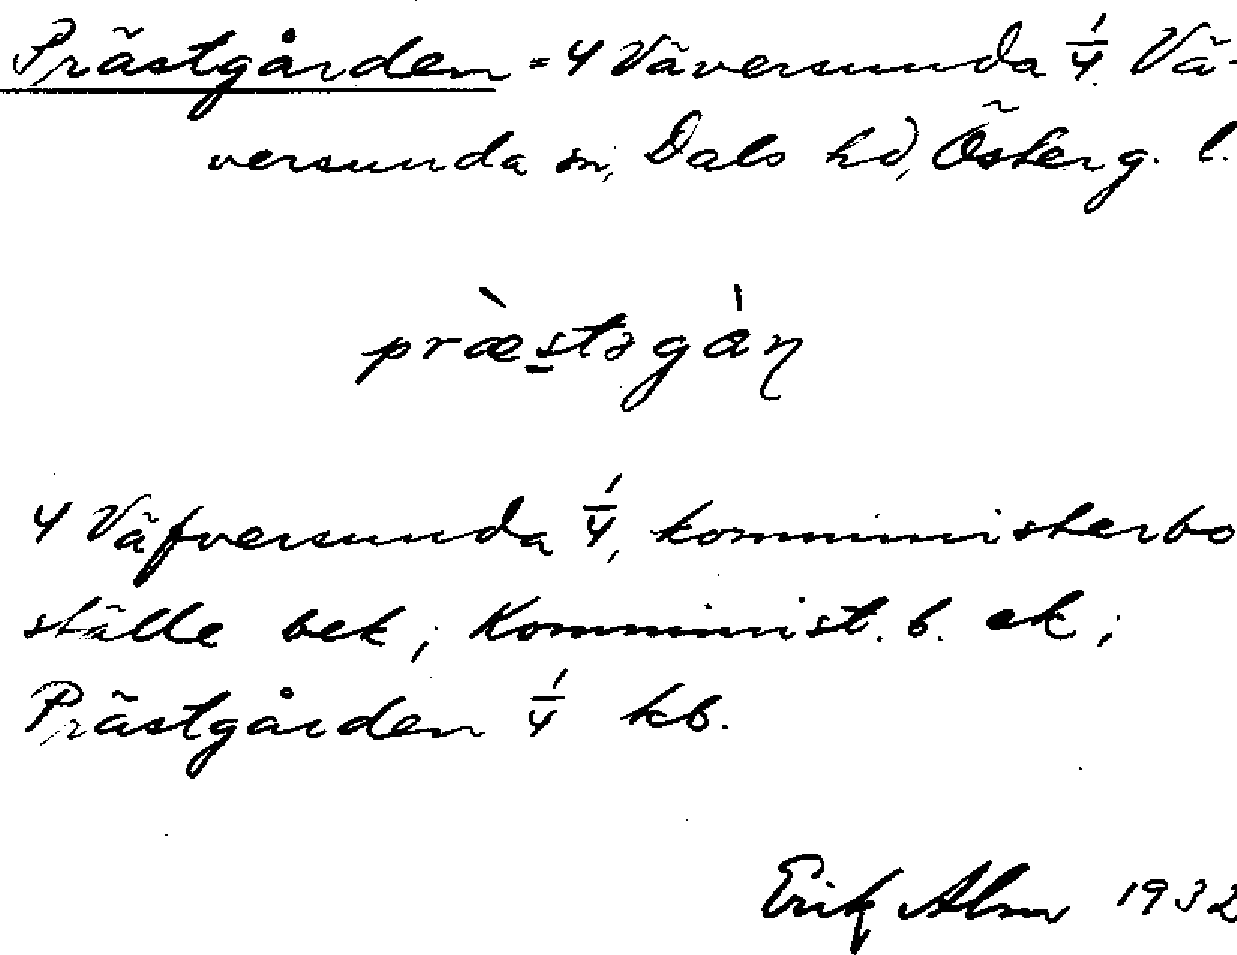 Prästgården = 4 Väversunda 1/4 Vä-
versunda sn, Dals hd, Österg. l.
præ̀stəgɑ̍ɳ
4 Väfversunda 1/4, komministerbo
ställe bek; Komminist. b. ek;
Prästgården 1/4 kb.
Erik Alm 1932